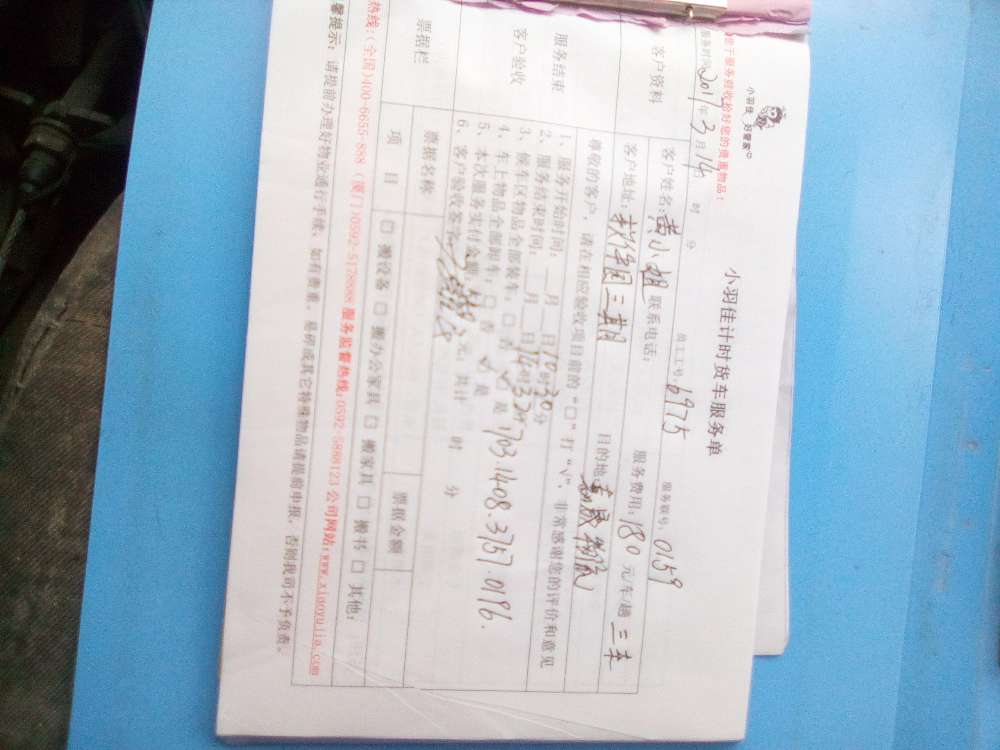 小羽佳 好管家
小羽佳计时货车服务单
服务时间2017年3月14日 时 分 员工工号:6975 服务联号:0159
客户资料
客户姓名:黄小姐 联系电话: 服务费用:180元/车/趟 三车
客户地址:软件园三期 目的地
尊敬的客户,请在相应验收项目前的“□”打“√”,非常感谢您的评价和意见
服务结束
客户验收
1、服务开始时间: 月 日10时30分
2、服务结束时间: 月 日14时32分
3、候车区物品全部装车。□否 是
4、车上物品全部卸车。□否 是 1703.1408.3757.0196.
5、本次服务实付金额: 元,共计 时 分
6、客户验收签字
票据栏
票据名称 票据金额
项目 □搬设备 □搬办公家具 □搬家具 □搬书 □其他:
热线:(全国)400-6655-888 (厦门)0592-5128888 服务监督热线:0592-5888123 公司网站:www.xiaoyujia.com
馨提示:请提前办理好物业通行手续,如有贵重、易碎或其它特殊物品请提前申报,否则我司不予负责。